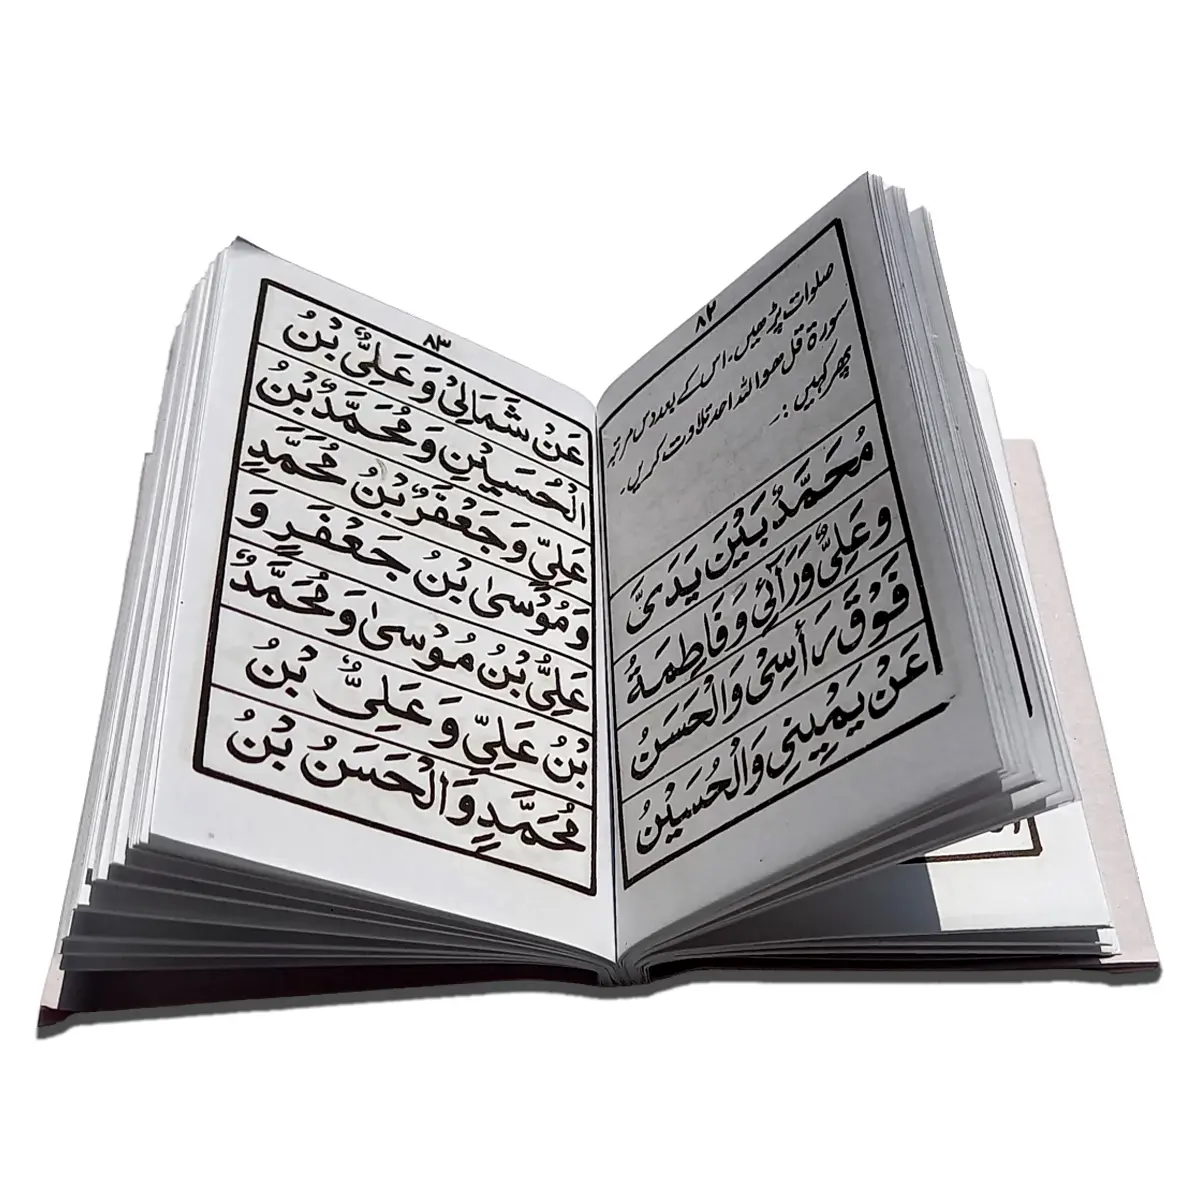 ۸۲
صلوات پڑھیں۔ اس کے بعد دس مرتبہ
سورۃ قل ھو اللہ احد تلاوت کریں۔
پھر کہیں :۔
مُحَمَّدٌ بَيْنَ يَدَىَّ
وَعَلِىٌّ وَرَائِىْ وَفَاطِمَةُ
فَوْقَ رَأْسِىْ وَالْحَسَنُ
عَنْ يَمِيْنِىْ وَالْحُسَيْنُ
۸۳
عَنْ شَمَالِىْ وَعَلِىُّ بْنُ
الْحُسَيْنِ وَمُحَمَّدُ بْنُ
عَلِىٍّ وَجَعْفَرُ بْنُ مُحَمَّدٍ
وَمُوْسىٰ بْنُ جَعْفَرٍ وَ
عَلِىُّ بْنُ مُوْسىٰ وَمُحَمَّدُ
بْنُ عَلِىٍّ وَعَلِىُّ بْنُ
مُحَمَّدٍ وَالْحَسَنُ بْنُ